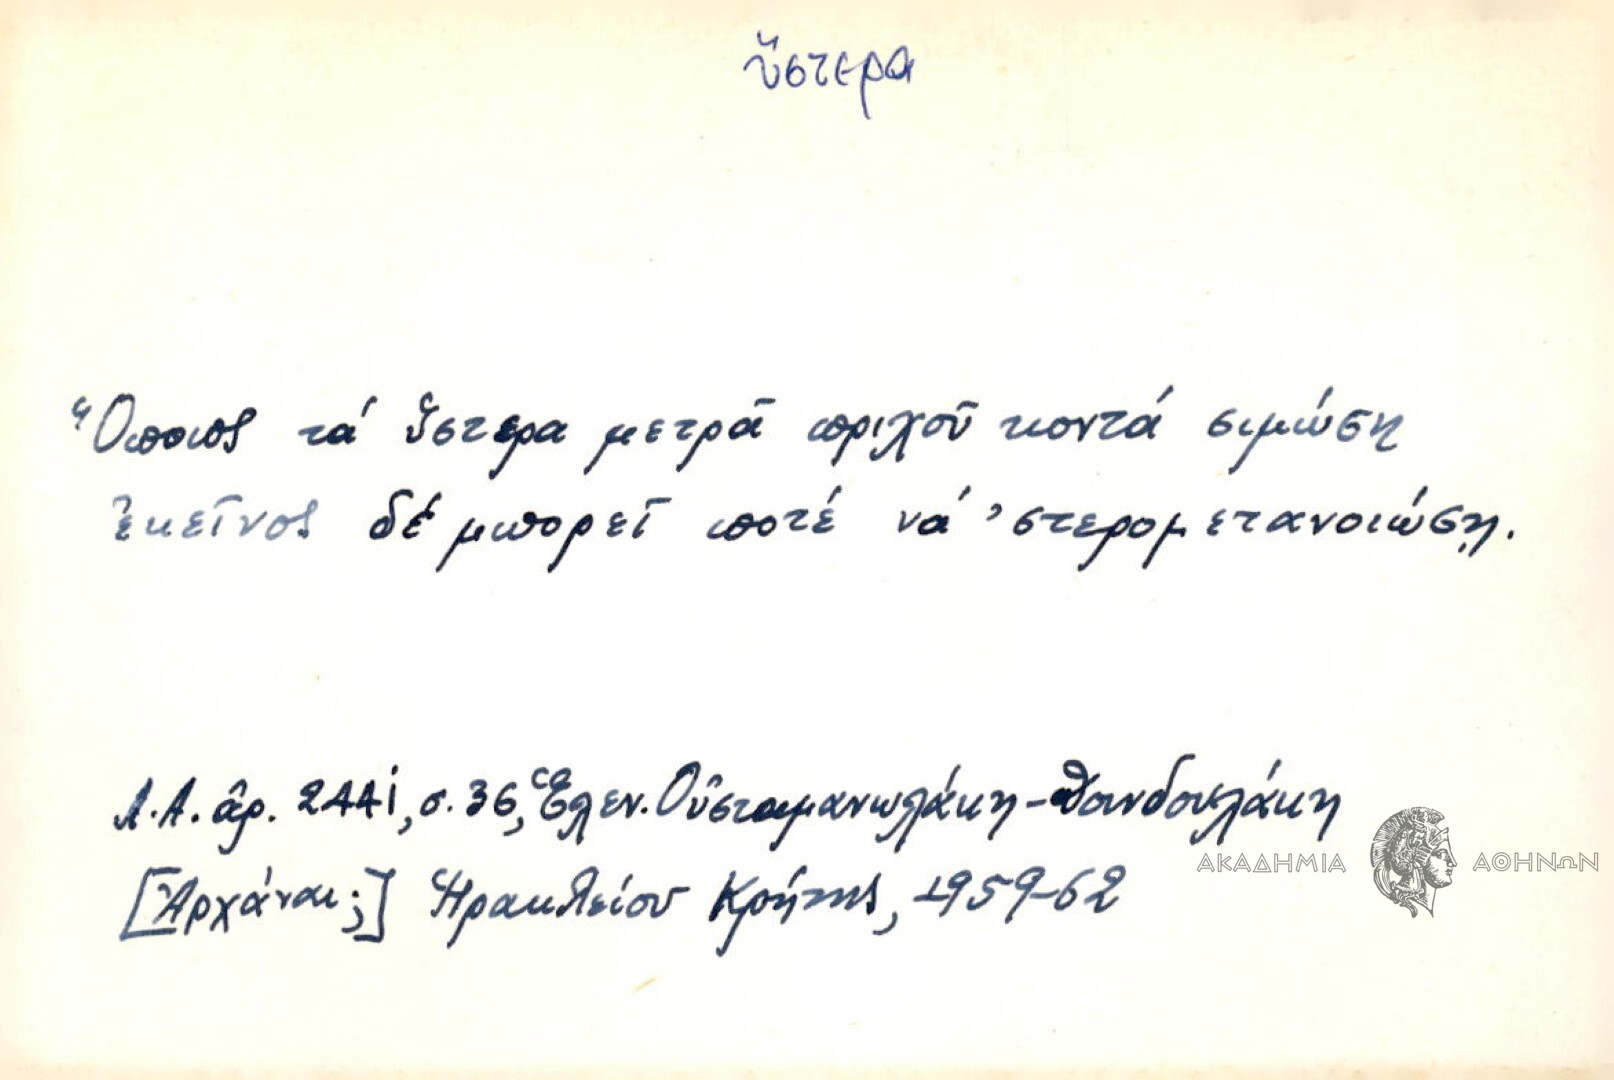 ὕστερα
Ὅποιος τά ὕστερα μετρᾶ πριχοῦ κοντά σιμώση
ἐκεῖνος δέ μπορεῖ ποτέ νά 'στερομετανοιώσῃ.
Λ.Α. ἀρ. 2441, σ. 36, Ἑλεν. Οὐσταμανωλάκη-
[Ἀρχάναι;] Ἡρακλείου Κρήτης, 1959-62
ΑΚΑΔΗΜΙΑ ΑΘΗΝΩΝ